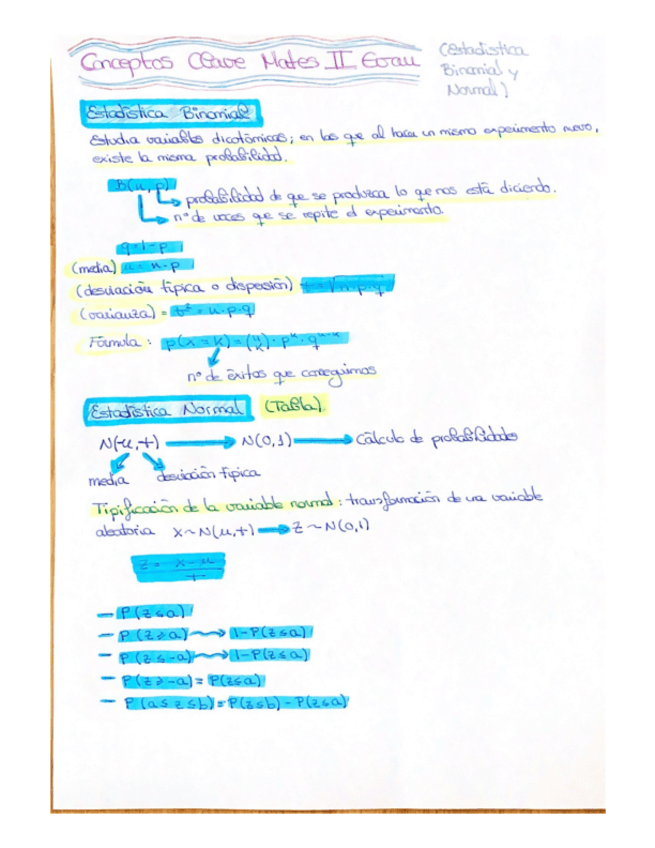 Conceptos Clave Mates II Ecrau
(Estadística
Binomial y
Normal)
Estadística Binomial
Estudia variables dicotómicas; en las que al hacer un mismo experimento nuevo,
existe la misma probabilidad.
B(n, p)
probabilidad de que se produzca lo que nos está diciendo.
nº de veces que se repite el experimento.
q = 1 - p
(media) μ = n · p
(desviación típica o dispersión) σ = √n·p·q
(varianza) = σ² = n · p · q
Fórmula : p(x = k) = (n k) · pᵏ · qⁿ⁻ᵏ
nº de éxitos que conseguimos
Estadística Normal (Tabla)
N(μ, σ) → N(0,1) → Cálculo de probabilidades
media desviación típica
Tipificación de la variable normal : transformación de una variable
aleatoria x ~ N(μ, σ) → Z ~ N(0,1)
Z = x - μ / σ
- P(z ≤ a)
- P(z ≥ a) → 1 - P(z ≤ a)
- P(z ≤ -a) → 1 - P(z ≤ a)
- P(z ≥ -a) = P(z ≤ a)
- P(a ≤ z ≤ b) = P(z ≤ b) - P(z ≤ a)